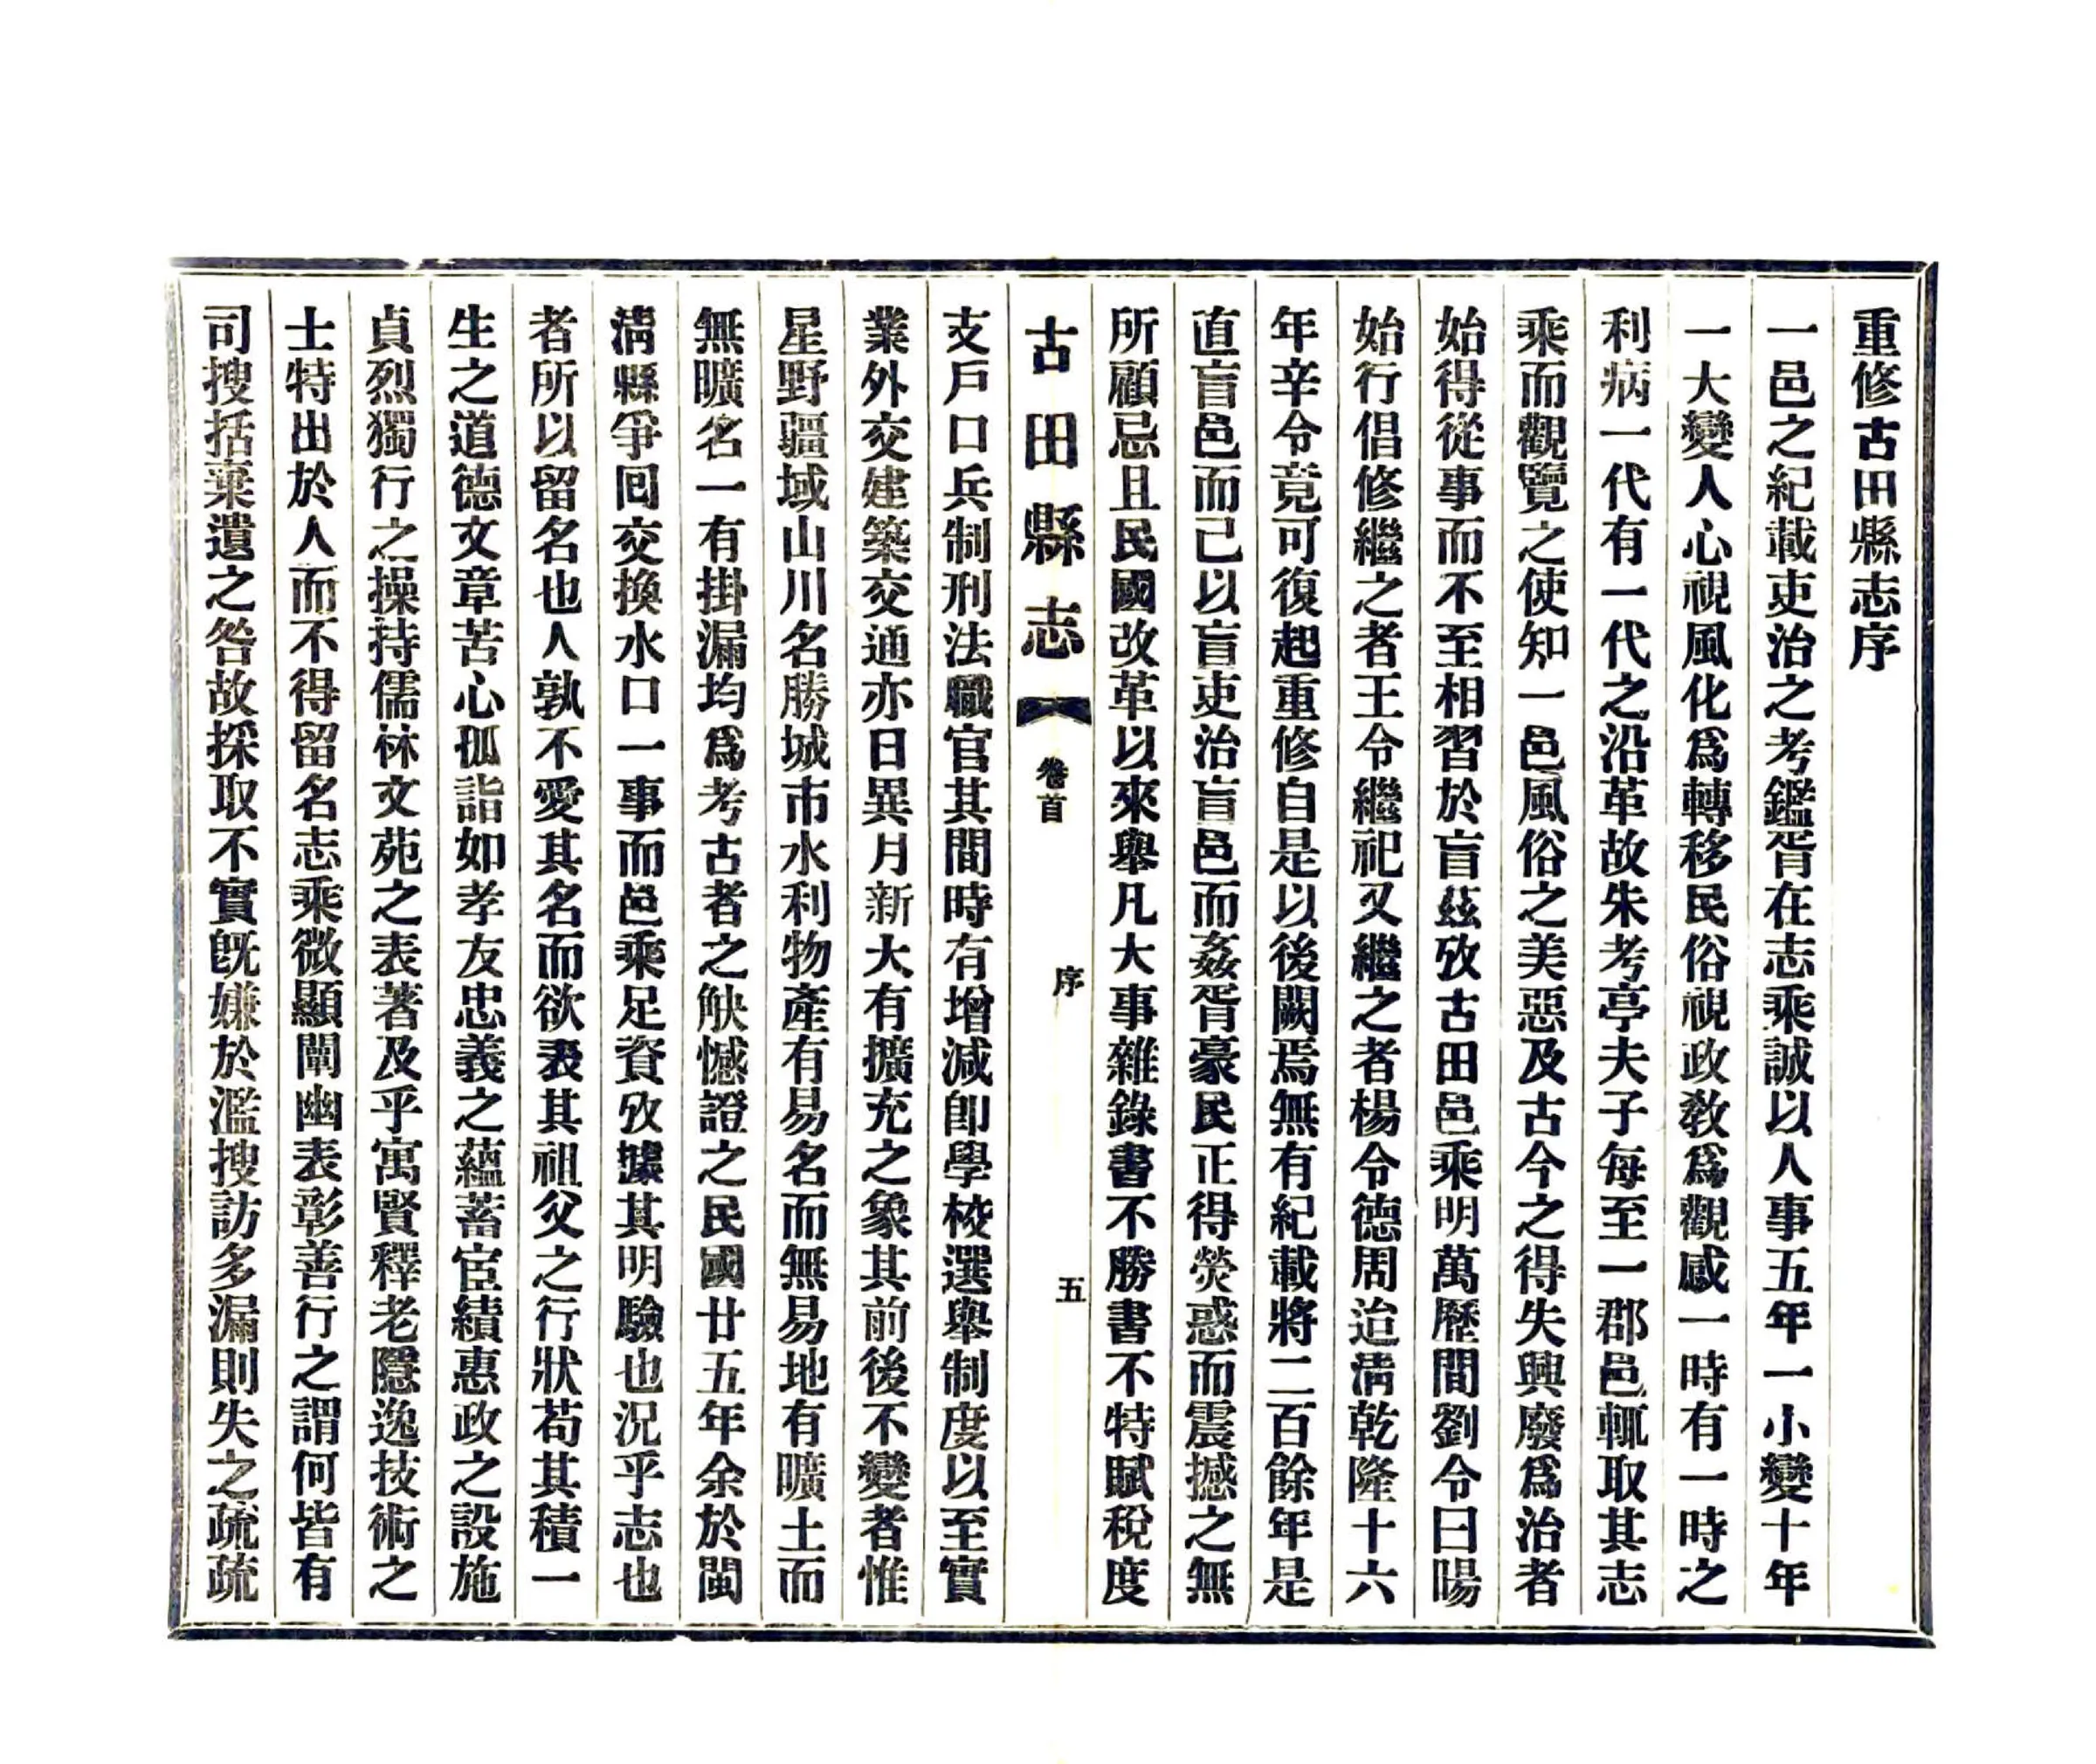 重修古田縣志序
一邑之紀載吏治之考鑑胥在志乘誠以人事五年一小變十年
一大變人心視風化爲轉移民俗視政教爲觀感一時有一時之
利病一代有一代之沿革故朱考亭夫子每至一郡邑輒取其志
乘而觀覽之使知一邑風俗之美惡及古今之得失興廢爲治者
始得從事而不至相習於盲茲攷古田邑乘明萬歷間劉令曰暘
始行倡修繼之者王令繼祀又繼之者楊令德周迨淸乾隆十六
年辛令竟可復起重修自是以後闕焉無有紀載將二百餘年是
直盲邑而已以盲吏治盲邑而姦胥豪民正得熒惑而震撼之無
所顧忌且民國改革以來舉凡大事雜錄書不勝書不特賦稅度
古田縣志 卷首 序 五
支戶口兵制刑法職官其間時有增減卽學校選舉制度以至實
業外交建築交通亦日異月新大有擴充之象其前後不變者惟
星野疆域山川名勝城市水利物產有易名而無易地有曠土而
無曠名一有掛漏均爲考古者之觖憾證之民國廿五年余於閩
淸縣爭回交換水口一事而邑乘足資攷據其明驗也況乎志也
者所以留名也人孰不愛其名而欲表其祖父之行狀苟其積一
生之道德文章苦心孤詣如孝友忠義之蘊蓄宦績惠政之設施
貞烈獨行之操持儒林文苑之表著及乎寓賢釋老隱逸技術之
士特出於人而不得留名志乘微顯闡幽表彰善行之謂何皆有
司搜括棄遺之咎故採取不實旣嫌於濫搜訪多漏則失之疏疏